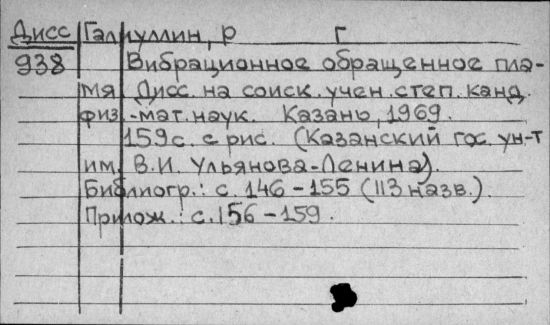 Дисс Галиуллин, Р Г
938 Вибрационное обращенное пла-
мя. Дисс. на соиск. учен. степ. канд.
физ.-мат. наук. Казань, 1969.
159с. с рис. (Казанский гос. ун-т
им. В.И. Ульянова-Ленина).
Библиогр.: с. 146-155 (113 назв.).
Прилож.: с. 156-159.